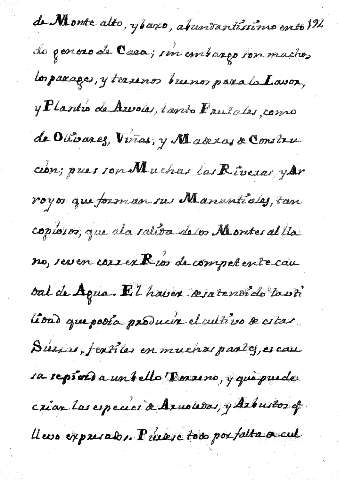 de Monte alto, y baxo, abundantissimo en to 124
do genero de Caza; sin embargo son muchos
los parages, y terrenos buenos para la Lavor,
y Plantio de Arvoles, tanto Frutales, como
de Olivares, Viñas, y Maderas de Constru
cion; pues son Muchas las Riveras y Ar
royos que forman sus Manantiales, tan
copiosos, que a la salida de los Montes al lla
no, se ven correr Rios de competente cau
dal de Agua. El haver desatendido la uti
lidad que podia producir el cultivo de estas
fertiles en muchas partes, es cau
sa se pierda un bello Terreno, y que puede
criar las especies de Arvoledas, y Arbustos q̃
llevo expresados. Pierdese todo por falta de cul